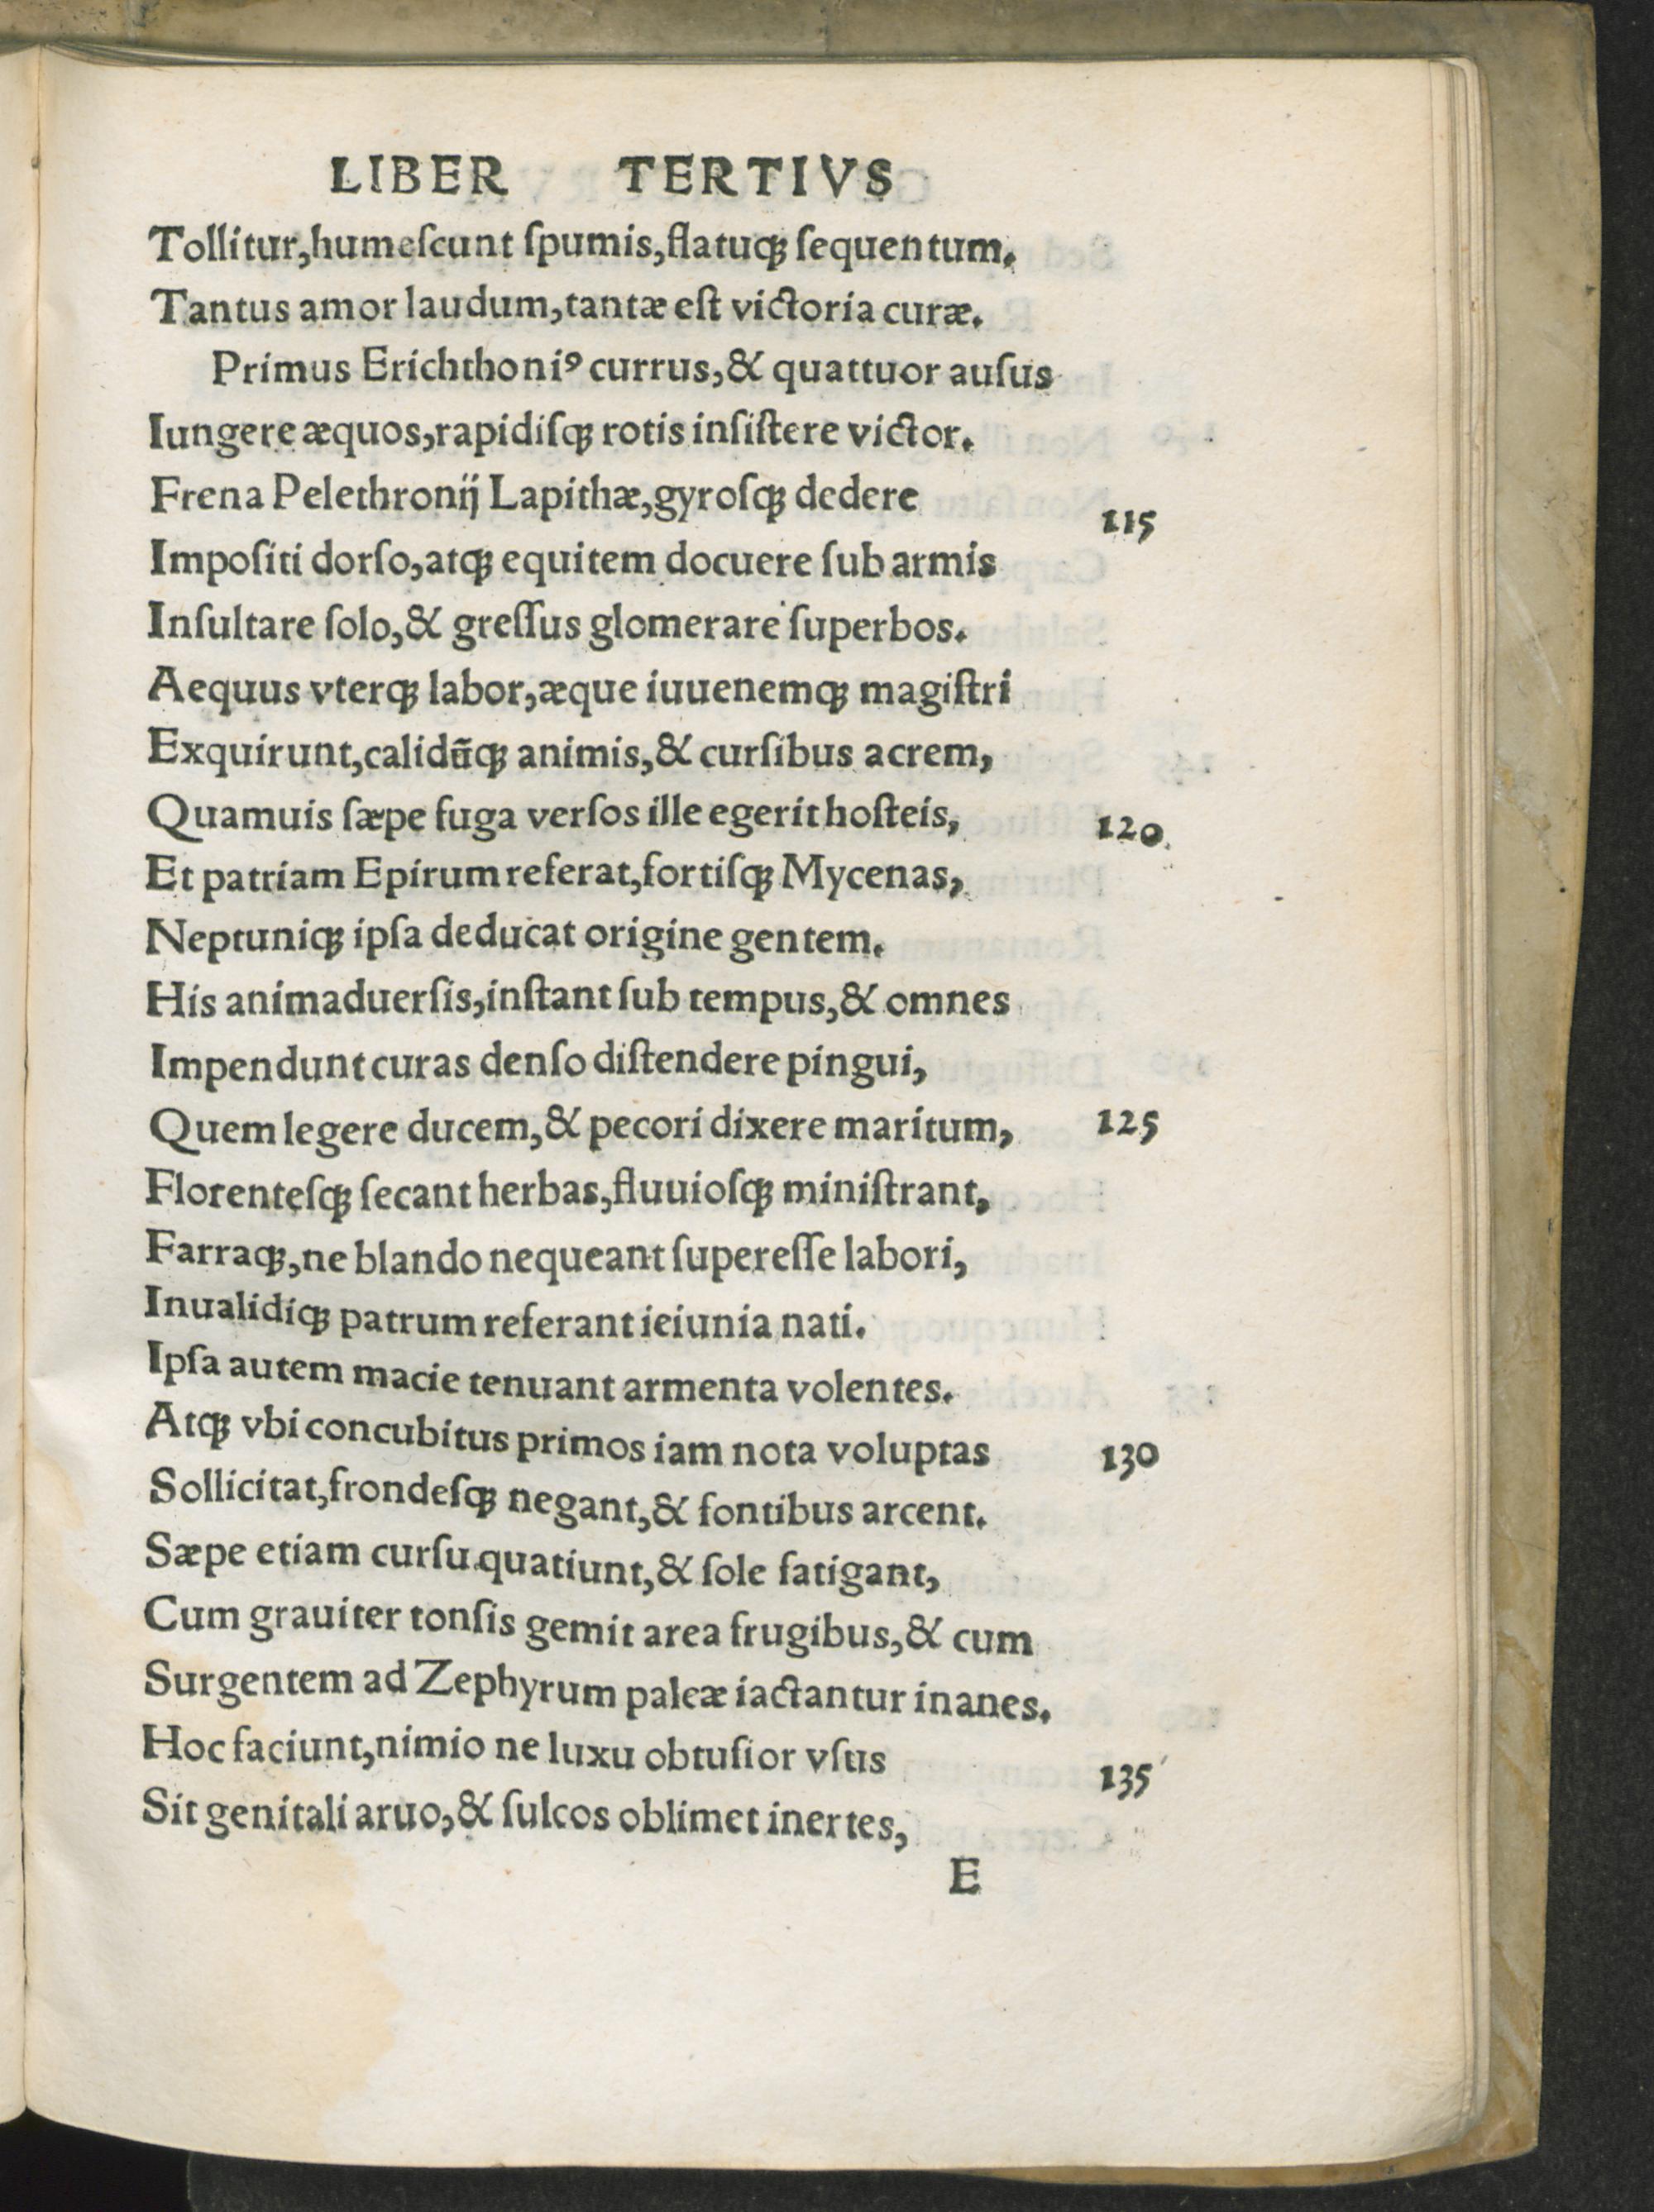 LIBER TERTIVS
Tollitur,humeſcunt ſpumis,flatuqꝫ ſequentum.
Tantus amor laudum,tantæ eſt victoria curæ.
Primus Erichthoniꝰ currus,& quattuor auſus
Iungere æquos,rapidiſqꝫ rotis inſiſtere victor.
Frena Pelethronij Lapithæ,gyroſqꝫ dedere
115
Impoſiti dorſo,atqꝫ equitem docuere ſub armis
Inſultare ſolo,& greſſus glomerare ſuperbos.
Aequus vterqꝫ labor,æque iuuenemqꝫ magiſtri
Exquirunt,calidũqꝫ animis,& curſibus acrem,
Quamuis ſæpe fuga verſos ille egerit hoſteis, 120
Et patriam Epirum referat,fortiſqꝫ Mycenas,
Neptuniqꝫ ipſa deducat origine gentem.
His animaduerſis,inſtant ſub tempus,& omnes
Impendunt curas denſo diſtendere pingui,
Quem legere ducem,& pecori dixere maritum, 125
Florenteſqꝫ ſecant herbas,fluuioſqꝫ miniſtrant,
Farraqꝫ,ne blando nequeant ſupereſſe labori,
Inualidiqꝫ patrum referant ieiunia nati.
Ipſa autem macie tenuant armenta volentes.
Atqꝫ vbi concubitus primos iam nota voluptas 130
Sollicitat,frondeſqꝫ negant,& fontibus arcent.
Sæpe etiam curſu quatiunt,& ſole fatigant,
Cum grauiter tonſis gemit area frugibus,& cum
Surgentem ad Zephyrum paleæ iactantur inanes.
Hoc faciunt,nimio ne luxu obtuſior vſus 135
Sit genitali aruo,& ſulcos oblimet inertes,
E